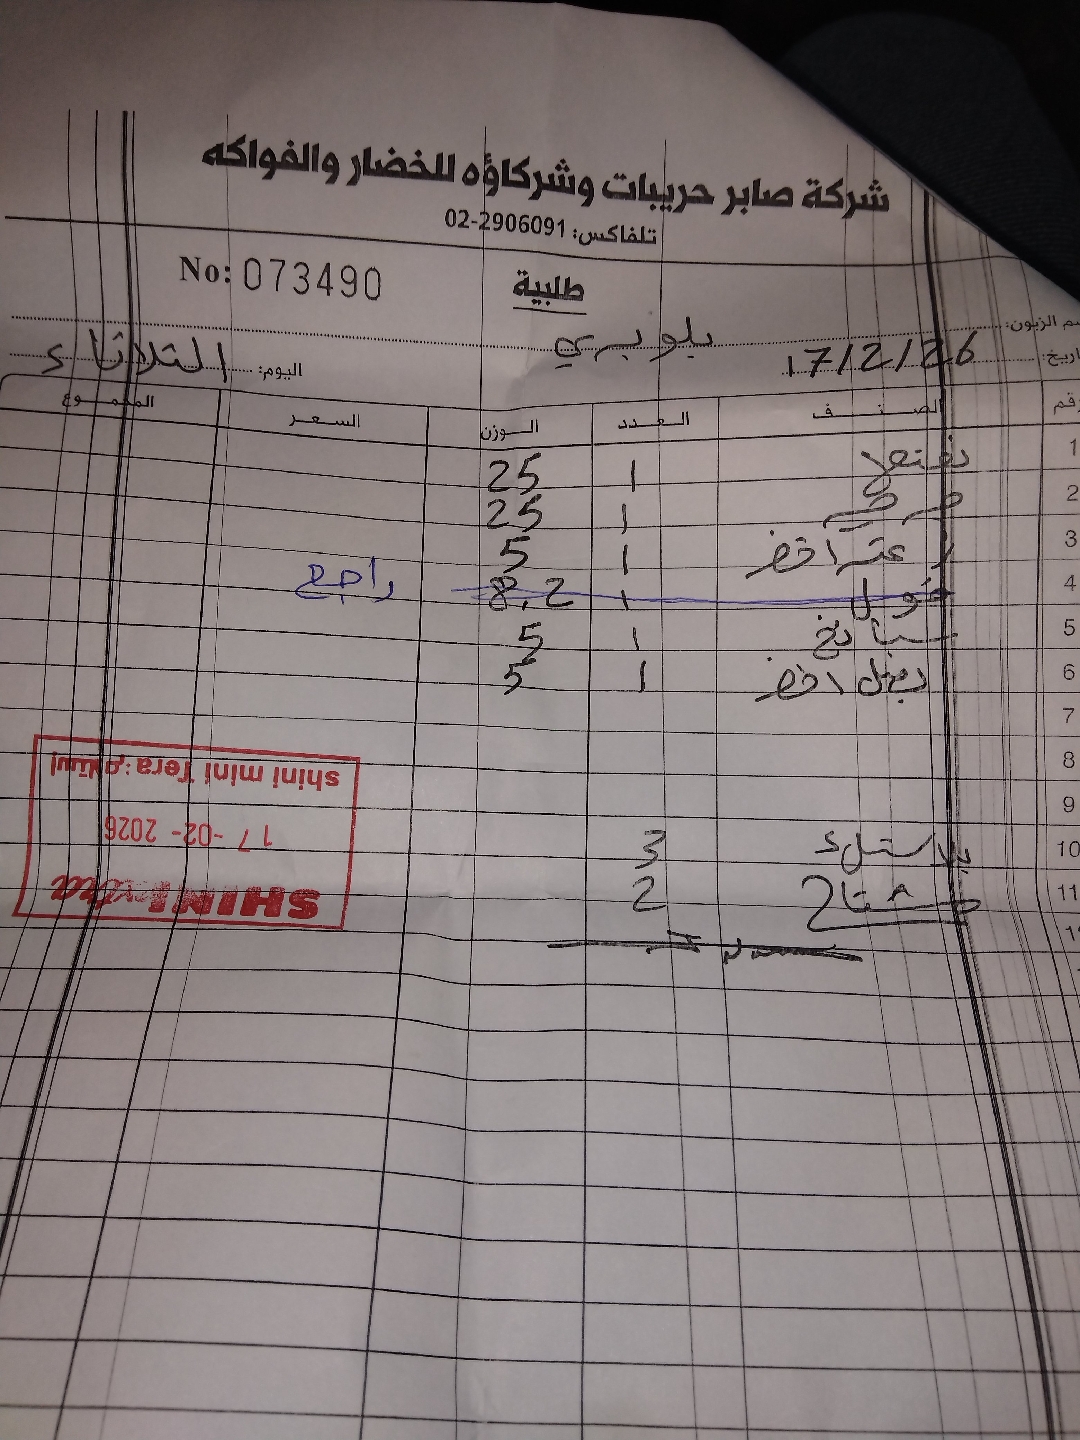 شركة صابر حريبات وشركاؤه للخضار والفواكه
تلفاكس: 02-2906091
No: 073490
طلبية
سم الزبون: بلو بري
اريخ: 17/2/26 اليوم: الثلاثاء
رقم الصنف العدد الوزن السعر المجموع
1 1 25
2 1 25
3 زعتر اخضر 1 5
4 فول 1 8.2 راجع
5 سبانخ 1 5
6 بصل اخضر 1 5
7
8
9
10 بلاستك 3
11 مشتاح 2
shini mini Tera استلام:
17-02-2026
SHINI